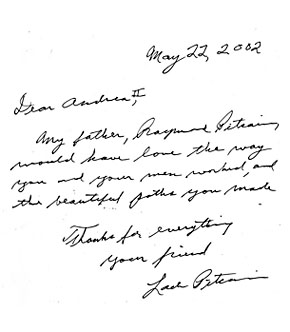 May 22, 2002
Dear Andrea II,
My father, Raymond Pitcairn,
would have love the way
you and your men worked, and
the beautiful paths you made
Thanks for everything
your friend
Pitcairn